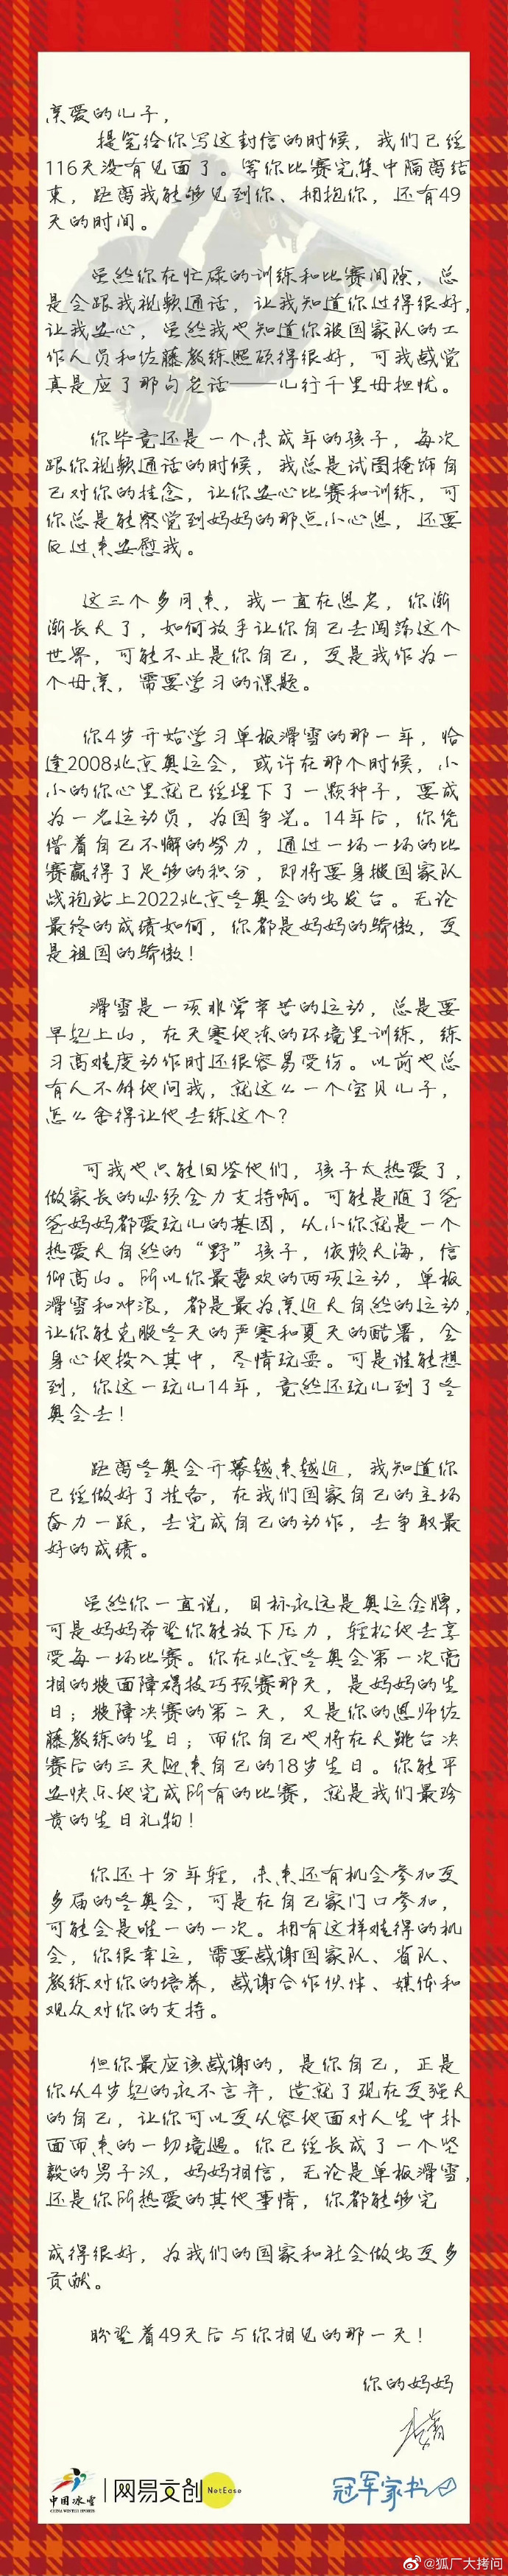 亲爱的儿子，
提笔给你写这封信的时候，我们已经
116天没有见面了。等你比赛完集中隔离结
束，距离我能够见到你、拥抱你，还有49
天的时间。
虽然你在忙碌的训练和比赛间隙，总
是会跟我视频通话，让我知道你过得很好，
让我安心，虽然我也知道你被国家队的工
作人员和佐藤教练照顾得很好，可我感觉
真是应了那句老话——儿行千里母担忧。
你毕竟还是一个未成年的孩子，每次
跟你视频通话的时候，我总是试图掩饰自
己对你的挂念，让你安心比赛和训练，可
你总是能察觉到妈妈的那点小心思，还要
反过来安慰我。
这三个多月来，我一直在思考，你渐
渐长大了，如何放手让你自己去闯荡这个
世界，可能不止是你自己，更是我作为一
个母亲，需要学习的课题。
你4岁开始学习单板滑雪的那一年，恰
逢2008北京奥运会，或许在那个时候，小
小的你心里就已经埋下了一颗种子，要成
为一名运动员，为国争光。14年后，你凭
借着自己不懈的努力，通过一场一场的比
赛赢得了足够的积分，即将要身披国家队
战袍站上2022北京冬奥会的出发台。无论
最终的成绩如何，你都是妈妈的骄傲，更
是祖国的骄傲！
滑雪是一项非常辛苦的运动，总是要
早起上山，在天寒地冻的环境里训练，练
习高难度动作时还很容易受伤。以前也总
有人不解地问我，就这么一个宝贝儿子，
怎么舍得让他去练这个？
可我也只能回答他们，孩子太热爱了，
做家长的必须全力支持啊。可能是随了爸
爸妈妈都爱玩儿的基因，从小你就是一个
热爱大自然的“野”孩子，依赖大海，信
仰高山。所以你最喜欢的两项运动，单板
滑雪和冲浪，都是最为亲近大自然的运动，
让你能克服冬天的严寒和夏天的酷暑，全
身心地投入其中，尽情玩耍。可是谁能想
到，你这一玩儿14年，竟然还玩儿到了冬
奥会去！
距离冬奥会开幕越来越近，我知道你
已经做好了准备，在我们国家自己的主场
奋力一跃，去完成自己的动作，去争取最
好的成绩。
虽然你一直说，目标永远是奥运金牌，
可是妈妈希望你能放下压力，轻松地去享
受每一场比赛。你在北京冬奥会第一次亮
相的坡面障碍技巧预赛那天，是妈妈的生
日；坡障决赛的第二天，又是你的恩师佐
藤教练的生日；而你自己也将在大跳台决
赛后的三天迎来自己的18岁生日。你能平
安快乐地完成所有的比赛，就是我们最珍
贵的生日礼物！
你还十分年轻，未来还有机会参加更
多届的冬奥会，可是在自己家门口参加，
可能会是唯一的一次。拥有这样难得的机
会，你很幸运，需要感谢国家队、省队、
教练对你的培养，感谢合作伙伴、媒体和
观众对你的支持。
但你最应该感谢的，是你自己，正是
你从4岁起的永不言弃，造就了现在更强大
的自己，让你可以更从容地面对人生中扑
面而来的一切境遇。你已经长成了一个坚
毅的男子汉，妈妈相信，无论是单板滑雪，
还是你所热爱的其他事情，你都能够完
成得很好，为我们的国家和社会做出更多
贡献。
盼望着49天后与你相见的那一天！
你的妈妈
中国冰雪
CHINA WINTER SPORTS
网易文创 NetEase
冠军家书
@狐厂大拷问